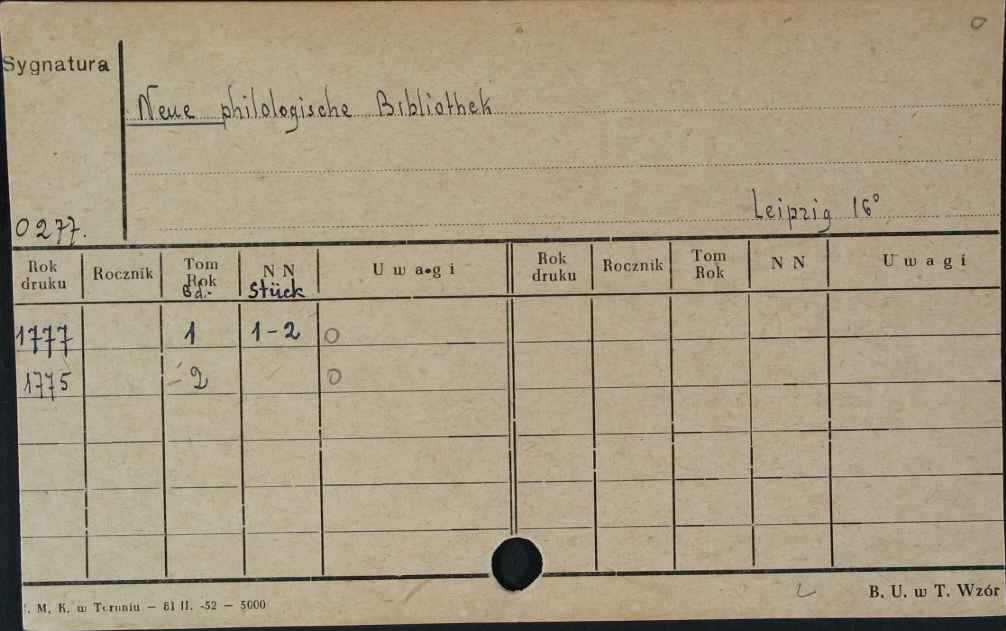 Sygnatura
Neue philologische Bibliothek
Leipzig 16°
0277.
Rok druku Rocznik Tom Rok Bd. N N Stück Uwagi Rok druku Rocznik Tom Rok N N Uwagi
1777 1 1-2 0
1775 2 0
. M. K. w Toruniu — 81 II. -52 — 5000
B. U. w T. Wzór